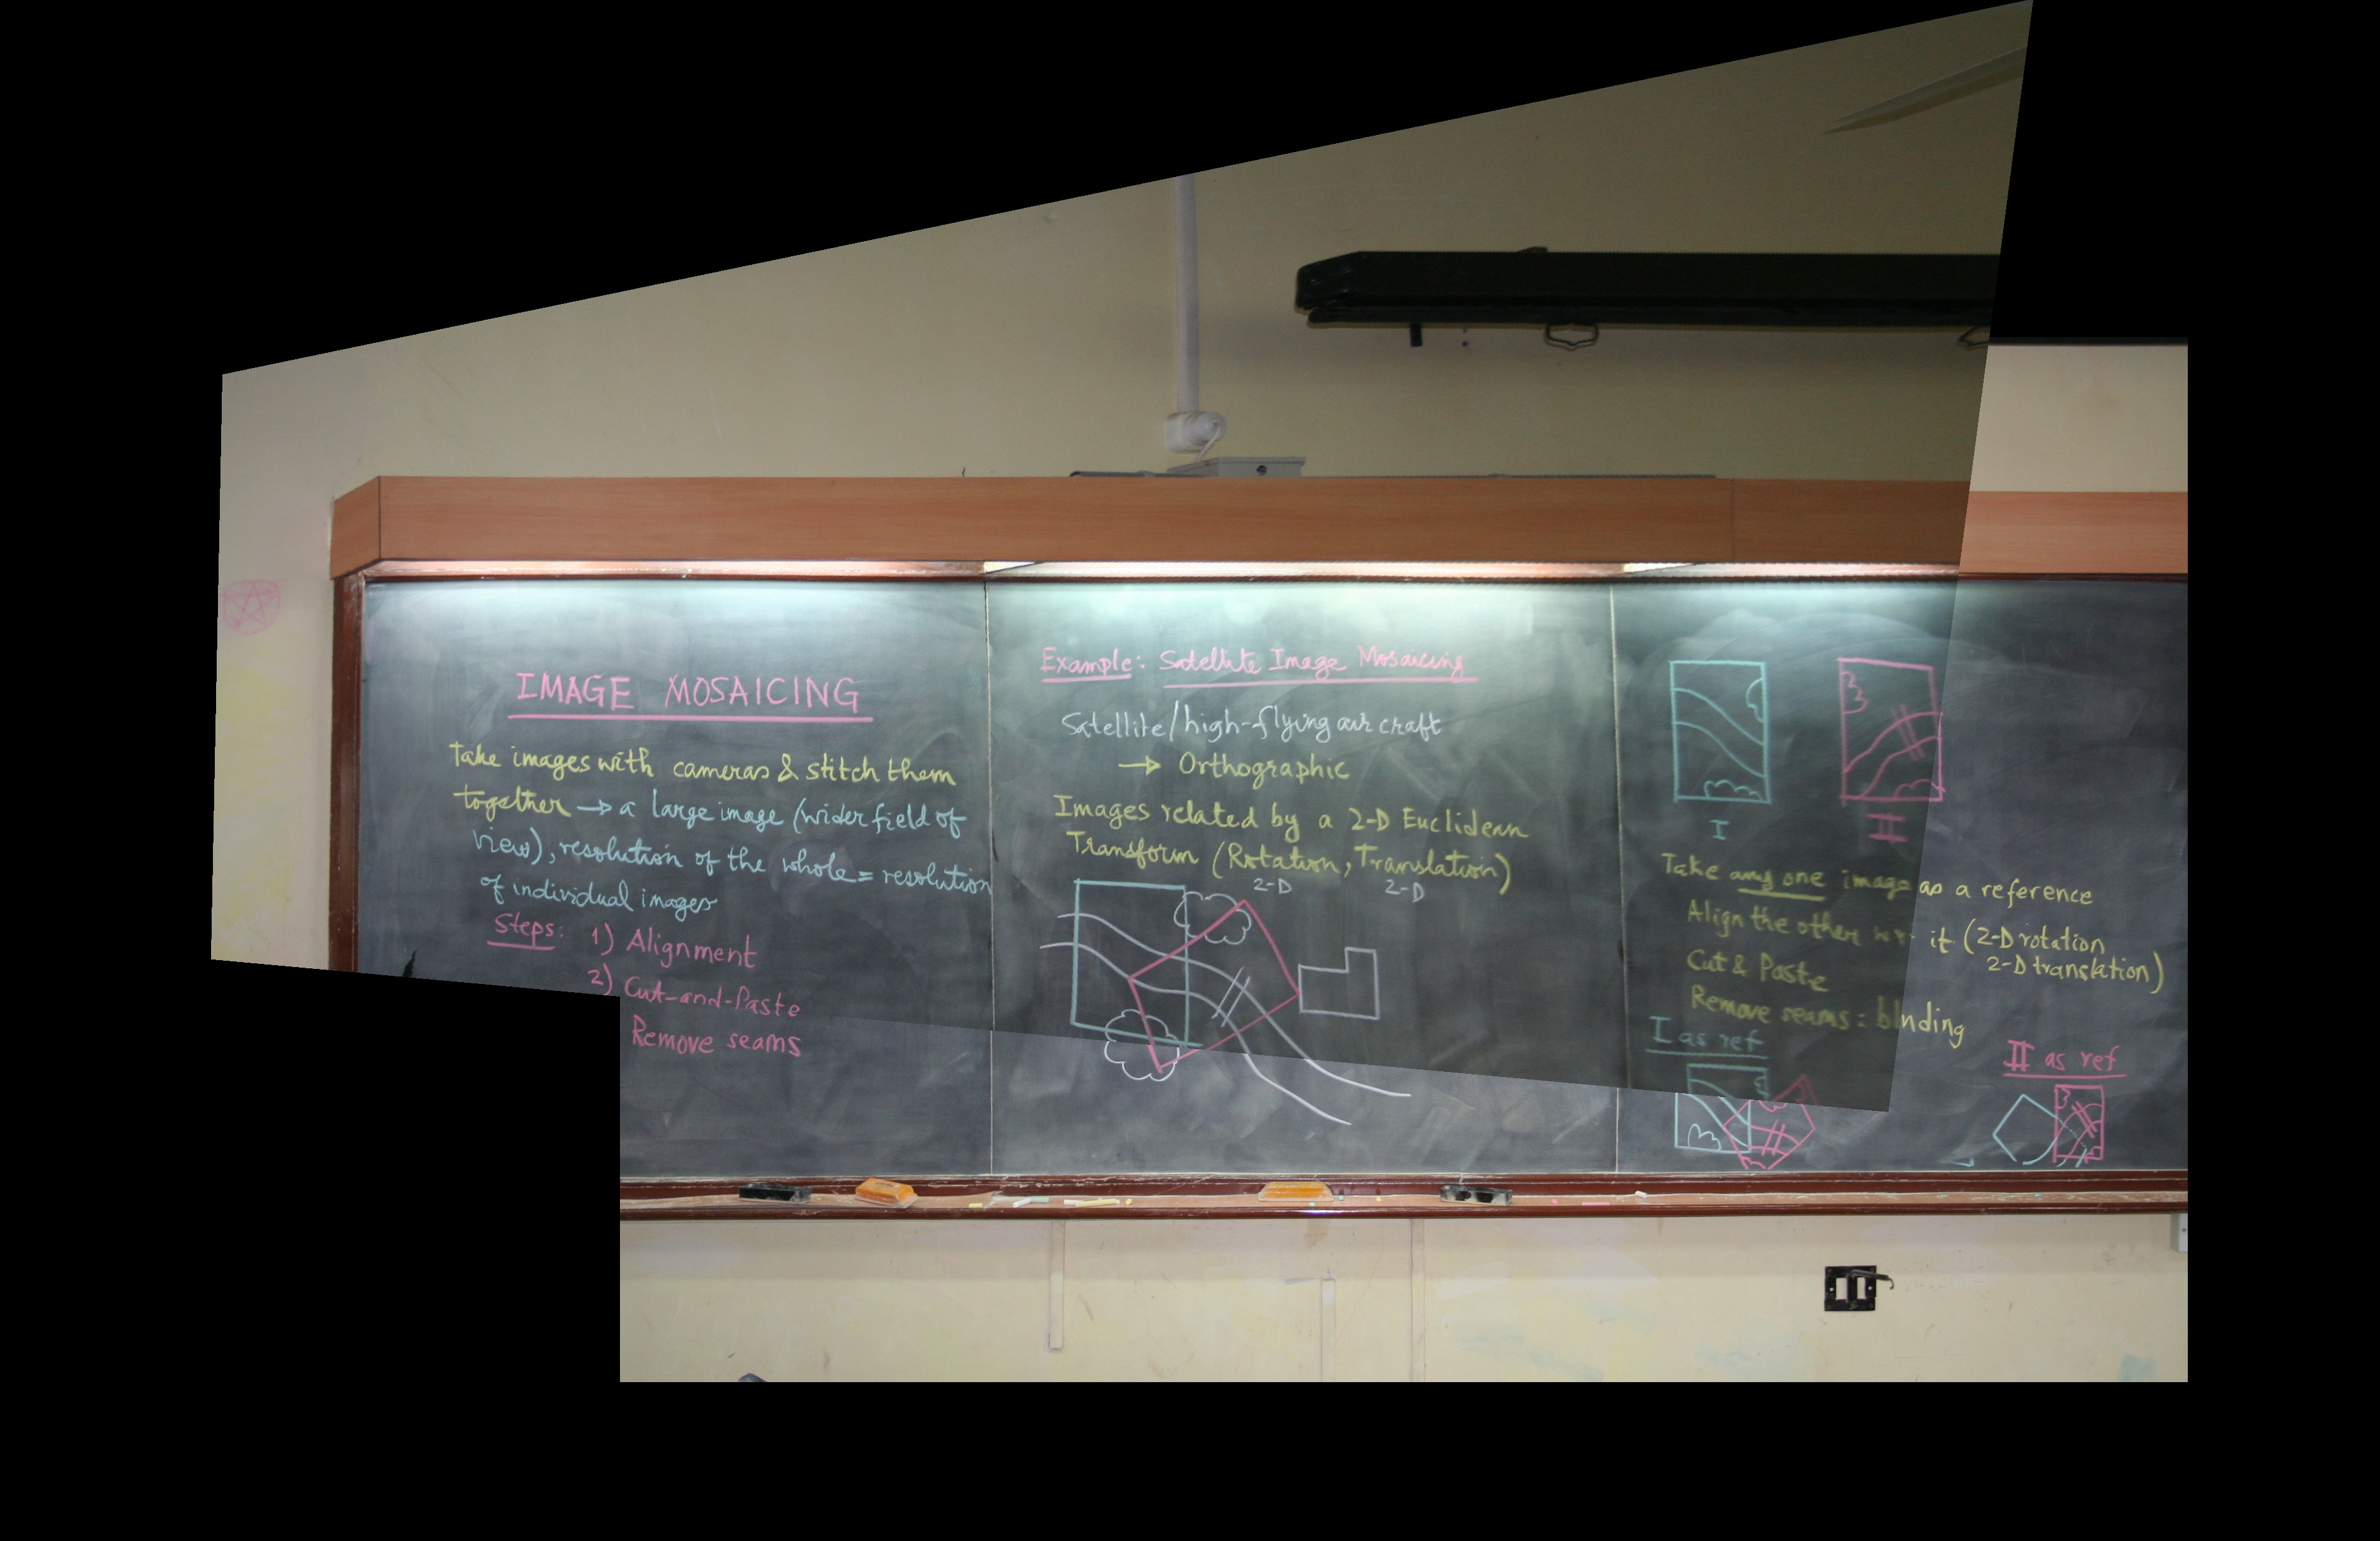 IMAGE MOSAICING
Take images with cameras & stitch them
together → a large image (wider field of
view), resolution of the whole = resolution
of individual images
Steps: 1) Alignment
2) Cut-and-Paste
Remove seams
Example: Satellite Image Mosaicing
Satellite/high-flying air craft
→ Orthographic
Images related by a 2-D Euclidean
Transform (Rotation, Translation)
2-D 2-D
I II
Take any one image as a reference
Align the other it (2-D rotation
2-D translation)
Cut & Paste
Remove seams : blnding
I as ref
II as ref